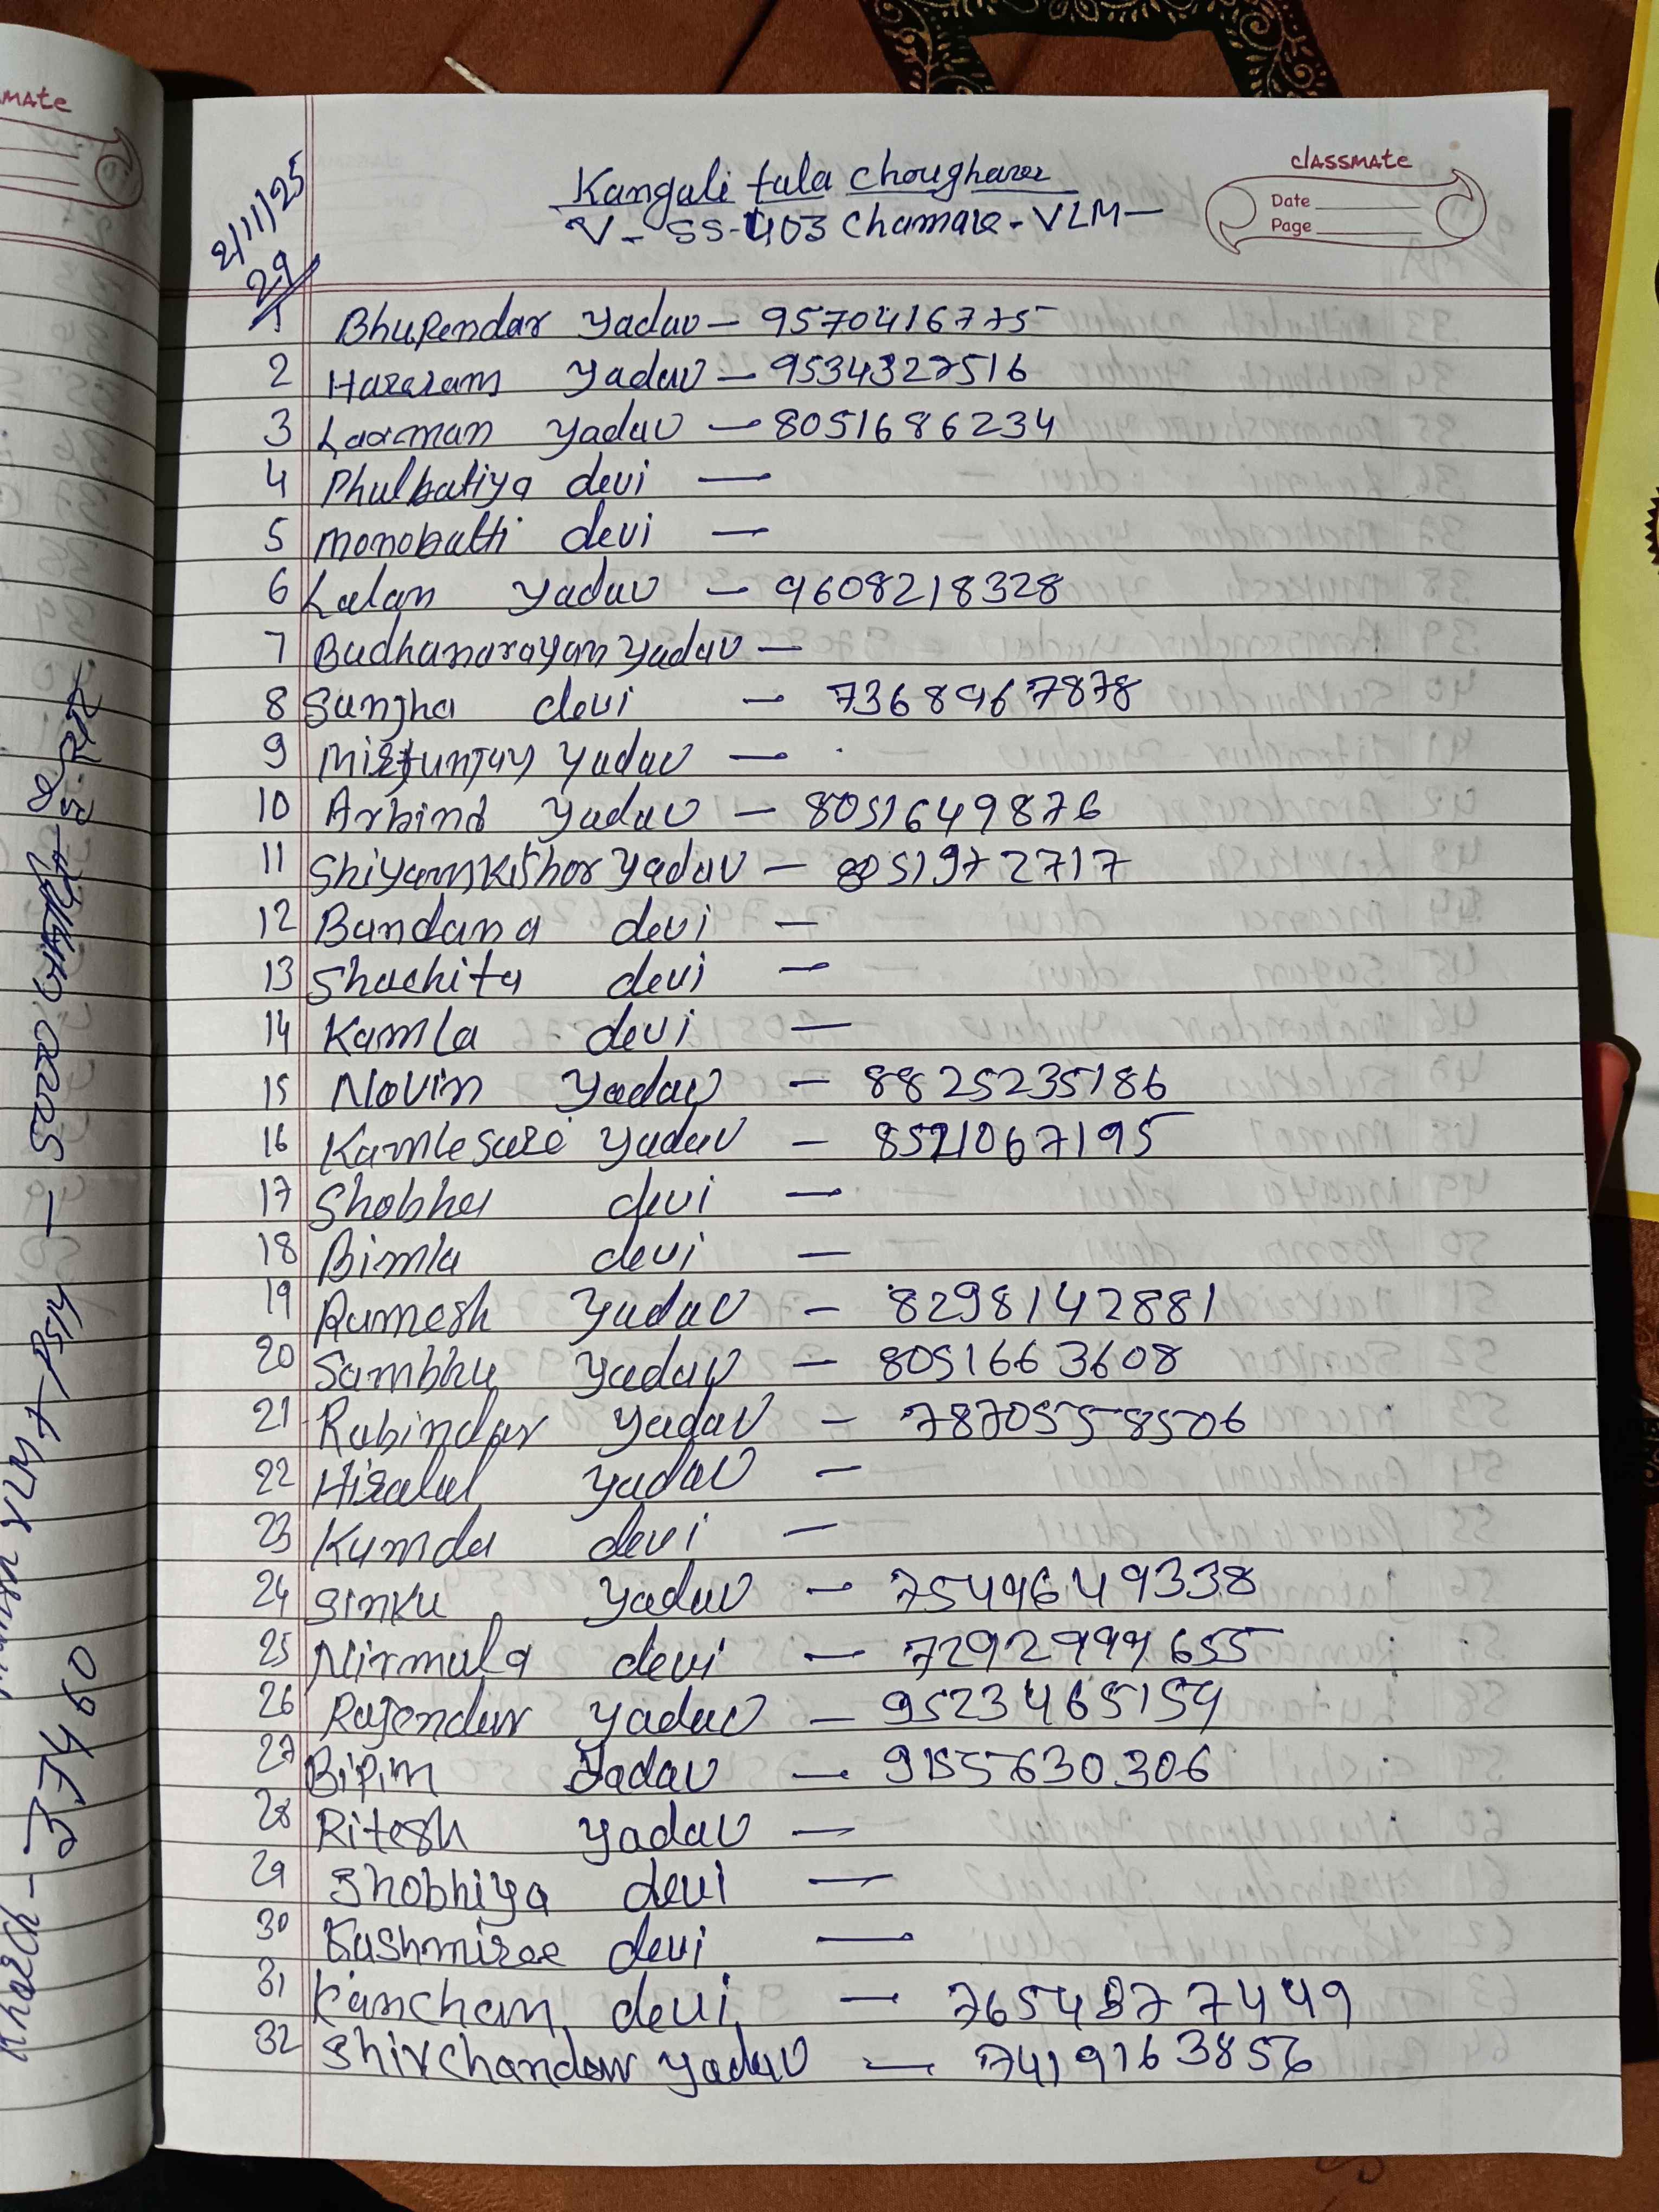 classmate
Date
Page
2/11/25
29
Kangali tala choughare
V- SS-403 Chamare - VLM -
1 Bhupendar Yadav - 9570416775
2 Hareram Yadav - 9534327516
3 Laxman Yadav - 8051686234
4 Phulbatiya devi -
5 monobatti devi -
6 Lalan Yadav - 9608218328
7 Budhanarayan Yadav -
8 Sunjha devi - 7368967878
9 Mirtunjay Yadav -
10 Arbind Yadav - 8051649876
11 Shiyamkishor Yadav - 8051972717
12 Bandana devi -
13 Shuchita devi -
14 Kamla devi -
15 Novin Yadav - 8825235186
16 Kamlesure Yadav - 8521067195
17 Shobha devi -
18 Bimla devi -
19 Rumesh Yadav - 8298142881
20 Sambhu Yadav - 8051663608
21 Rabindar Yadav - 7870558506
22 Hiralal Yadav -
23 Kumda devi -
24 Sinku Yadav - 7549649338
25 Nirmula devi -
26 Rajendar Yadav - 9523465154
27 Bipin Yadav - 9155630306
28 Ritesh Yadav -
29 Shobhiya devi -
30 Kashmiree devi -
31 Kanchan devi -
32 Shivchandar Yadav - 7419163856
Kharch - 37460
VLM + PSM - 50000